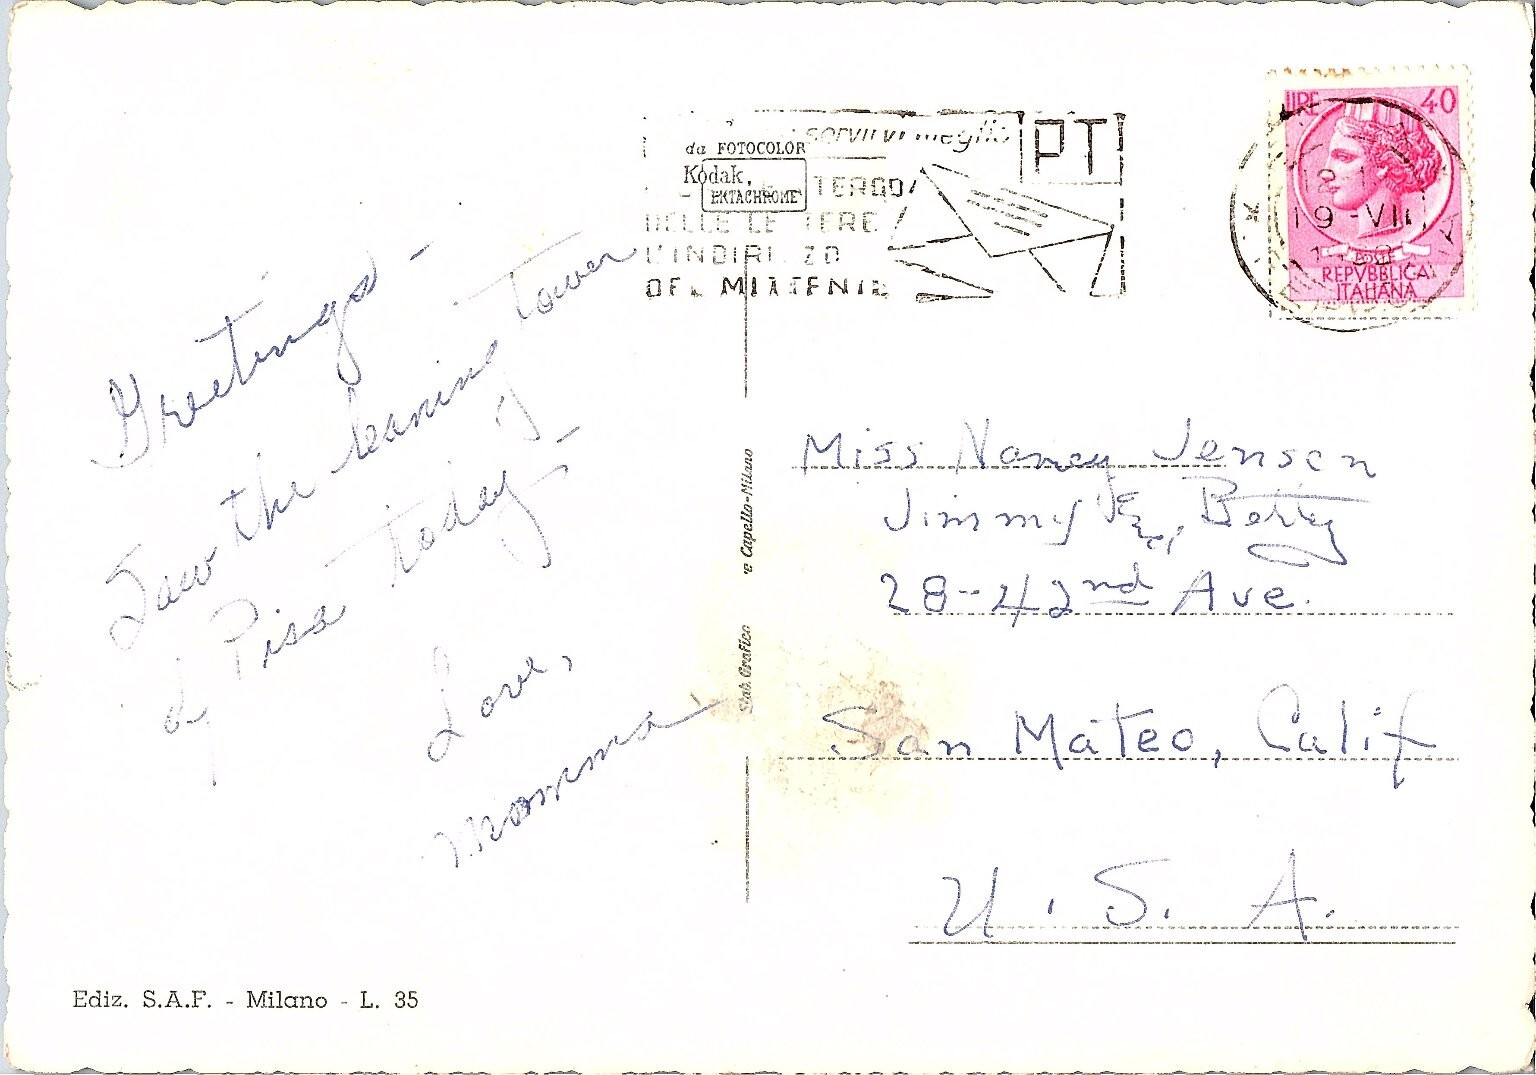 Greetings -
Saw the leaning tower
of Pisa today -
Love,
Momma
Ediz. S.A.F. - Milano - L. 35
da FOTOCOLOR
Kodak,
EKTACHROME
servirvi meglio
PT
TERGO
DELLE LETTERE
L'INDIRIZZO
DEL MITTENTE
LIRE 40
POSTE
REPVBBLICA
ITALIANA
19 -VII
Stab. Grafico Capello-Milano
Miss Nancy Jensen
Jimmy &, Betty
28-42nd Ave.
San Mateo, Calif
U. S. A.